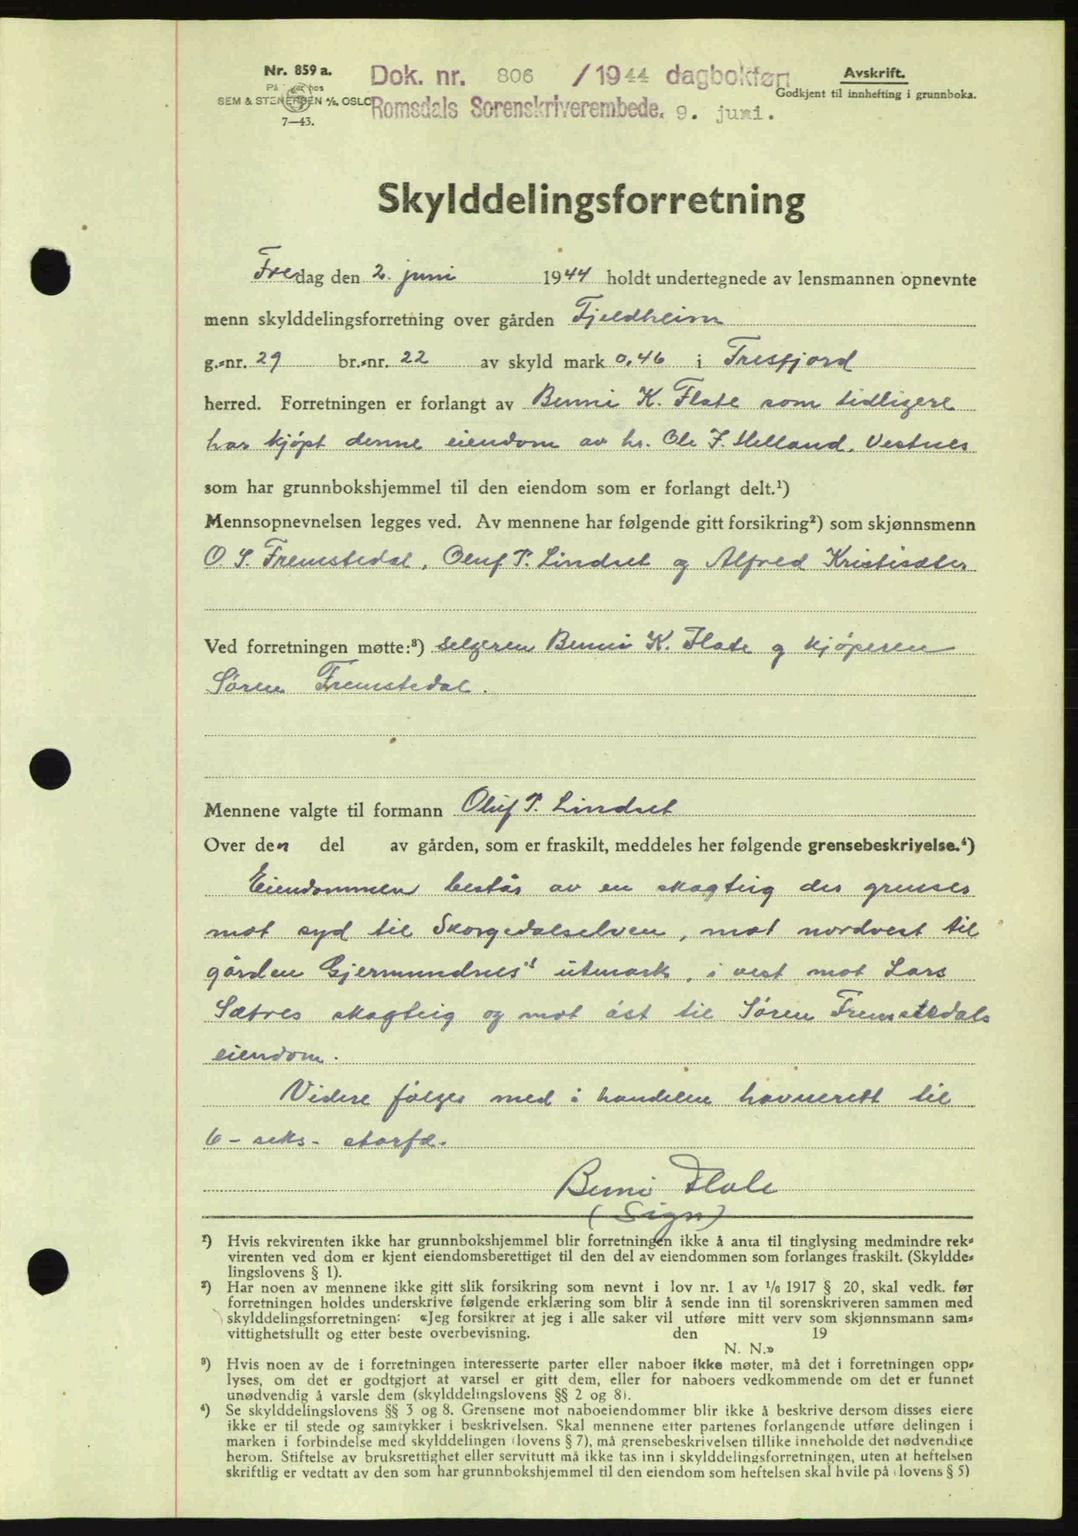 Nr. 859 a.
SEM & STENERSEN A/S, OSLO
7—43.
Dok. nr. 806 /1944 dagbokført
Romsdals Sorenskriverembede. 9. juni.
Avskrift.
Godkjent til innhefting i grunnboka.
Skylddelingsforretning
Fredag den 2. juni 1944 holdt undertegnede av lensmannen opnevnte
menn skylddelingsforretning over gården Fjeldheim
g.-nr. 29 br.-nr. 22 av skyld mark 0.46 i Tresfjord
herred. Forretningen er forlangt av Benni K. Flate som tidligere
har kjøpt denne eiendom av hr. Ole J. Helland, Vestnes
som har grunnbokshjemmel til den eiendom som er forlangt delt.¹)
Mennsopnevnelsen legges ved. Av mennene har følgende gitt forsikring²) som skjønnsmenn
O. S. Fremstedal, Oluf P. Lindset og Alfred Kristisæter
Ved forretningen møtte:³) selgeren Benni K. Flate og kjøperen
Søren Fremstedal.
Mennene valgte til formann Oluf P. Lindset
Over den del av gården, som er fraskilt, meddeles her følgende grensebeskrivelse.⁴)
Eiendommen består av en skogteig der grenser
mot syd til Skorgedalselven, mot nordvest til
gården Gjermundnes's utmark, i vest mot Lars
Sætres skogteig og mot øst til Søren Fremstedals
eiendom.
Videre følger med i handelen havnerett til
6 - seks - storfe.
Benni Flate
(Sign)
¹) Hvis rekvirenten ikke har grunnbokshjemmel blir forretningen ikke å anta til tinglysing medmindre rek-
virenten ved dom er kjent eiendomsberettiget til den del av eiendommen som forlanges fraskilt. (Skyldde-
lingslovens § 1).
²) Har noen av mennene ikke gitt slik forsikring som nevnt i lov nr. 1 av 1/6 1917 § 20, skal vedk. før
forretningen holdes underskrive følgende erklæring som blir å sende inn til sorenskriveren sammen med
skylddelingsforretningen: «Jeg forsikrer at jeg i alle saker vil utføre mitt verv som skjønnsmann sam-
vittighetsfullt og etter beste overbevisning. den 19
N. N.»
³) Hvis noen av de i forretningen interesserte parter eller naboer ikke møter, må det i forretningen opp-
lyses, om det er godtgjort at varsel er gitt dem, eller for naboers vedkommende om det er funnet
unødvendig å varsle dem (skylddelingslovens §§ 2 og 8).
⁴) Se skylddelingslovens §§ 3 og 8. Grensene mot naboeiendommer blir ikke å beskrive dersom disses eiere
ikke er til stede og samtykker i beskrivelsen. Skal mennene etter partenes forlangende utføre delingen i
marken i forbindelse med skylddelingen (lovens § 7), må grensebeskrivelsen tillike inneholde det nødvendige
herom. Stiftelse av bruksrettighet eller servitutt må ikke tas inn i skylddelingsforretningen, uten at heftelsen
skriftlig er vedtatt av den som har grunnbokshjemmel til den eiendom som heftelsen skal hvile på (lovens § 5)